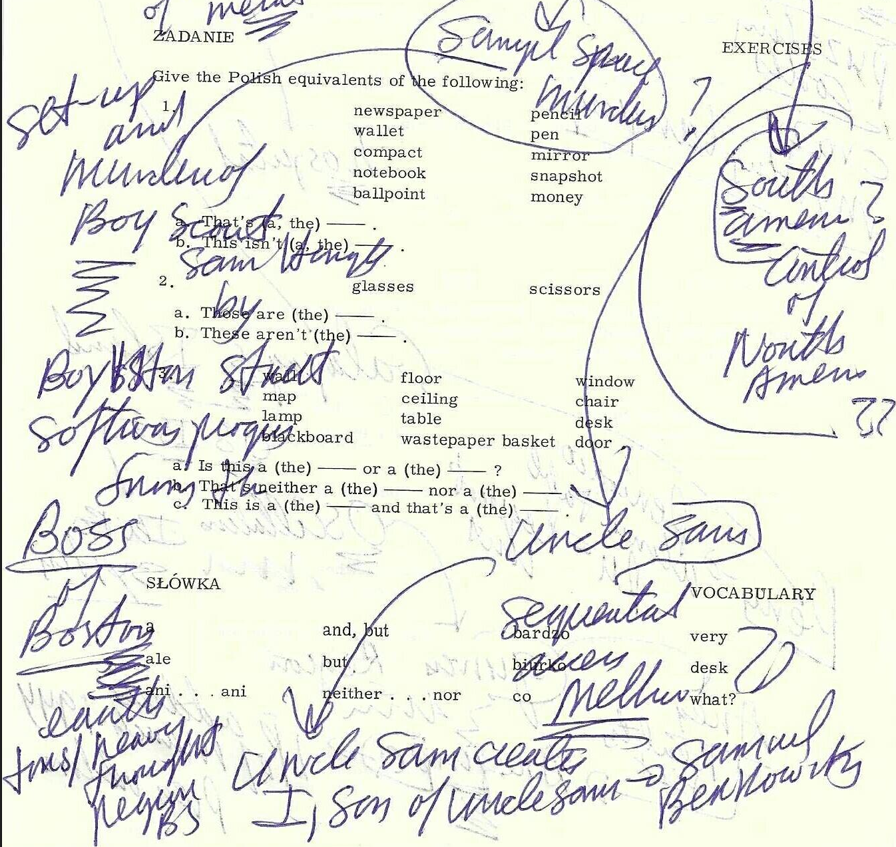 of metals
ZADANIE
EXERCISES
Give the Polish equivalents of the following:
1.
newspaper pencil
wallet pen
compact mirror
notebook snapshot
ballpoint money
a. That's (a, the) —— .
b. This isn't (a, the) —— .
2.
glasses scissors
a. Those are (the) —— .
b. These aren't (the) —— .
3.
wall floor window
map ceiling chair
lamp table desk
blackboard wastepaper basket door
a. Is this a (the) —— or a (the) —— ?
b. That's neither a (the) —— nor a (the) ——
c. This is a (the) —— and that's a (the) ——
SŁÓWKA
VOCABULARY
a and, but bardzo very
ale but biurko desk
ani . . . ani neither . . . nor co what?
set-up
and
Murder of
Boy Scout
Sam
by
Boylston Street
Software
from the
Boss
of
Boston
earth
heavy
thought
region
BS
Sampl Space
Murders ?
South
Amern ?
Control
of
North
Amern
??
Uncle Sam
sequential
Uncle Sam creates
I, Son of Uncle Sam → Samuel
Berkowitz